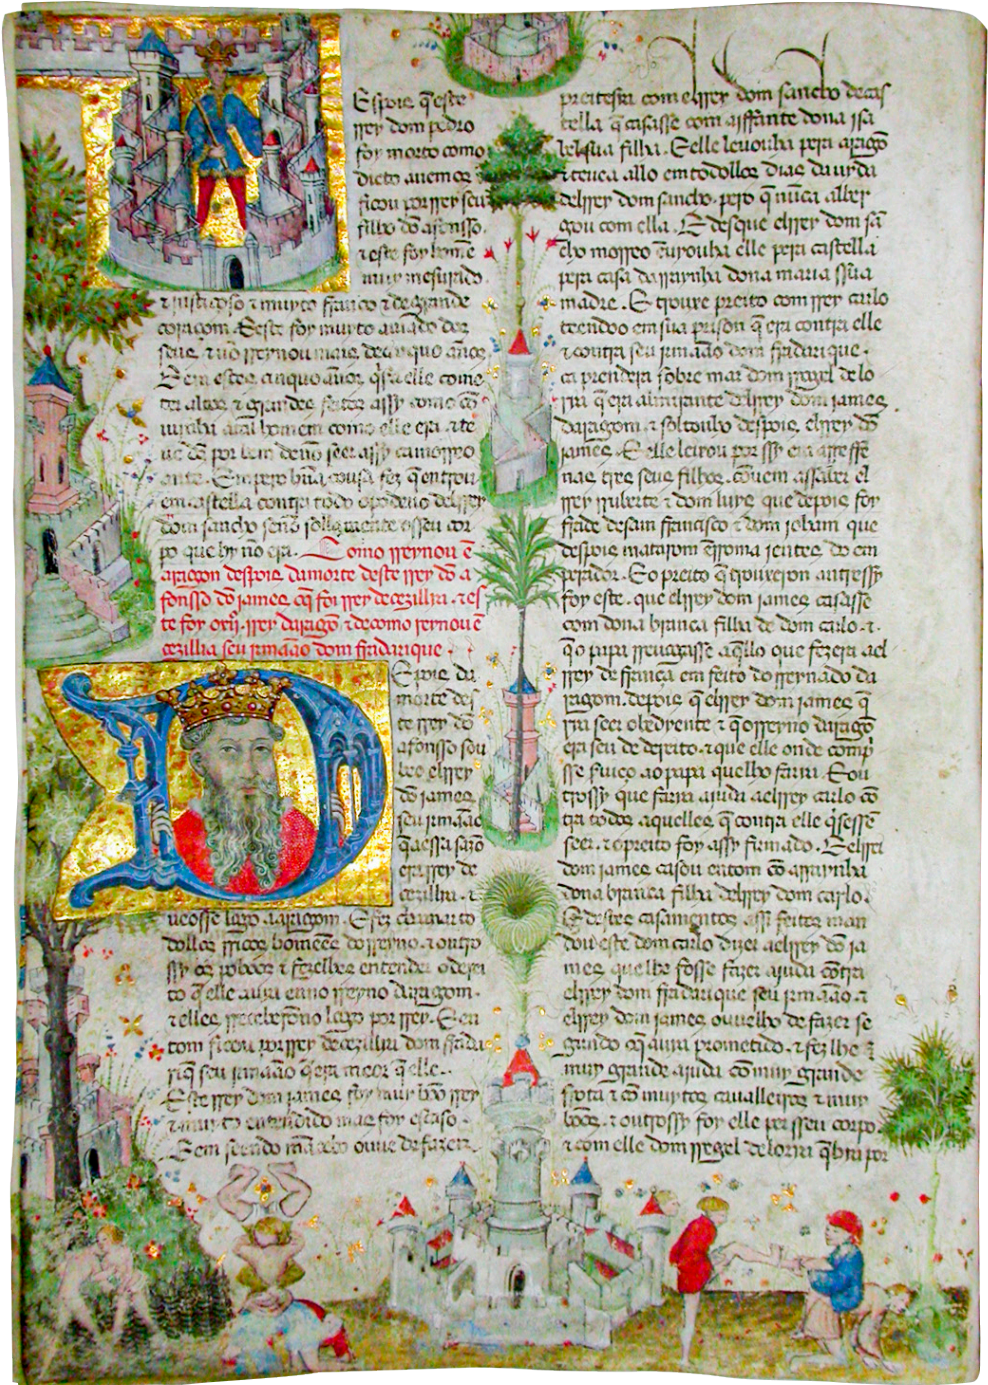 Espois q̃ este
rrey dom pedro
foy morto como
dicto auemos
ficou por rrey seu
filho dõ afonsso.
⁊ este foy home
muy mesurado.
⁊ justiçoso ⁊ muyto franco ⁊ de grande
coraçom. Este foy muyto amado dos
seus. ⁊ nõ rreynou mais de cinquo anos
E em estes cinquo anos q̃ria elle come
ter altos ⁊ grandes feitos assy como cõ
uinha atal homem como elle era. ⁊ te
ue dẽ por bem
ante. Empero hũa cousa fez q̃ entrou
em castella contra todo o poderio delrrey
dom sancho senõ sollamente o sseu cor
po que hy no era. Como rreynou ẽ
aragon despois da morte deste rrey dõ a
fonsso dõ james q̃ foi rrey de cezillia. ⁊ es
te foy rrey daragõ ⁊ de como reynou ẽ
cezillia seu jrmaão dom fradarique.
Espois da
morte des
te rrey dõ
afonsso sou
be o elrrey
dõ james
seu jrmaão
q̃ aessa sazõ
era rrey de
cezillia. ⁊
ueosse logo a aragom. E fez chamar to
dollos rricos homeẽs do rreyno. ⁊ outro
ssy os poboos ⁊ fezelhes entender o derei
to q̃ elle auia enno rreyno daragom.
⁊ elles rreceberõno logo por rrey. E en
tom ficou por rrey de cezillia dom frada
riq̃ seu jrmaão q̃ era meor q̃ elle.
Este rrey dom james foy muy boo rrey
⁊ muyto entendido mas foy escaso.
E em seendo mãcebo ouue de fazer
preitesia com elrrey dom sancho de cas
tella q̃ casasse com a iffante dona isa
bel sua filha. E elle leuouha pera aragõ
⁊ teuea allo em todollos dias da uyda
delrrey dom sancho. pero q̃ nũca alber
gou com ella. E desque elrrey dom sã
cho morreo ẽuiouha elle pera castella
pera casa da rraynha dona maria ssua
madre. E trouxe preito com rrey carlo
teendoo em sua prison q̃ era contra elle
⁊ contra seu jrmaão dom fradarique.
ca prendera sobre mar dom rrogel de lo
ria q̃ era almirante delrrey dom james
daragom. ⁊ soltouho despois elrrey dõ
james. E elle leixou por ssy em arreffe
nas tres seus filhos. cõuem assaber el
rrey rruberte ⁊ dom luys que depois foy
frade de sam francisco ⁊ dom joham que
despois matarom ẽ roma jentes do em
perador. E o preito q̃ trouxeron antressy
foy este. que elrrey dom james casasse
com dona branca filha de dom carlo. ⁊
q̃ o papa rreuogasse aq̃llo que fezera a el
rrey de frança em feito do rreynado da
ragom. depois q̃ elrrey dom james q̃
ria seer obedyente ⁊ q̃ o rreyno daragõ
era seu de dereito. ⁊ que elle onde comp
sse fiuço ao papa que lho faria. E ou
trossy que faria ajuda a elrrey carlo cõ
tra todos aquelles q̃ contra elle q̃sessẽ
seer. ⁊ o preito foy assy firmado. E elrrei
dom james casou entom cõ a rraynha
dona branca filha delrrey dom carlo.
E destes casamentos assi feitos man
dou este dom carlo dizer a elrrey dom ja
mes que lhe fosse fazer ajuda cõtra
elrrey dom fradarique seu jrmaão. ⁊
elrrey dom james ouuelho de fazer se
gundo q̃ auia prometudo. ⁊ fez lhe
muy grande ajuda cõ muy grande
frota ⁊ cõ muytos caualleiros ⁊ muy
boos. ⁊ outrossy foy elle per sseu corpo.
⁊ com elle dom rrogel de loria q̃ hia por